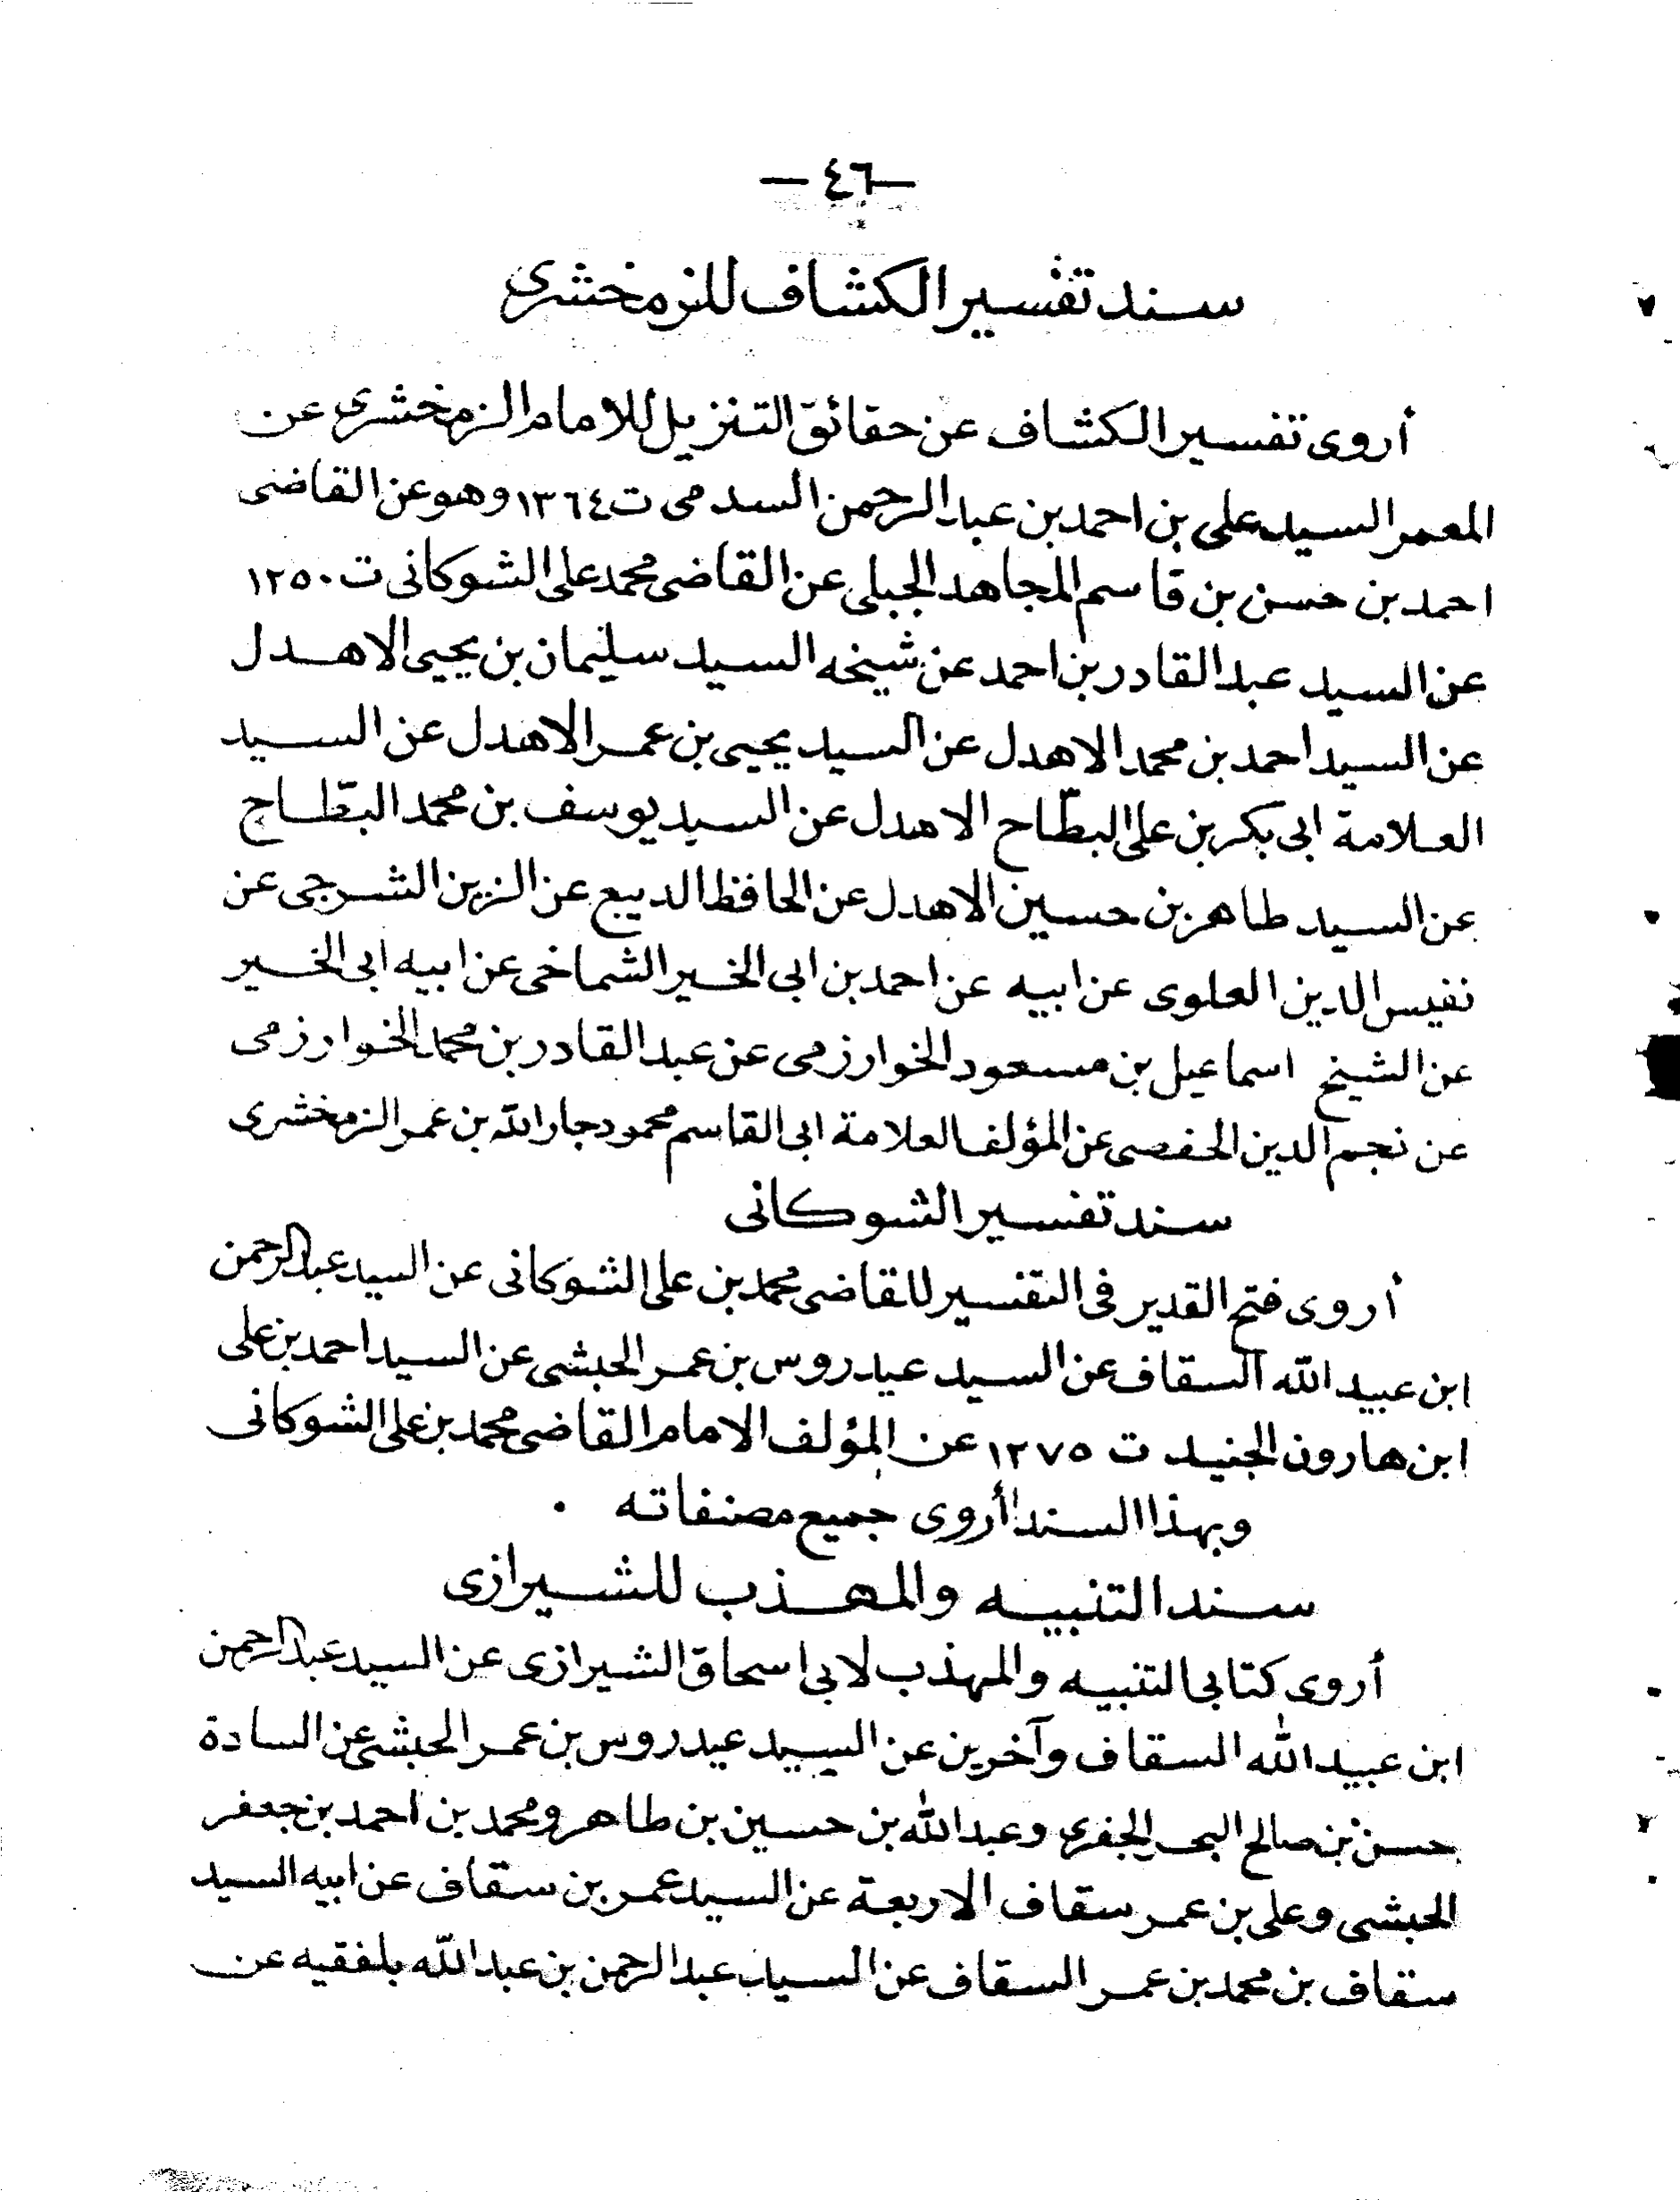 — ٤٦ —
سند تفسير الكشاف للزمخشرى
أروى تفسير الكشاف عن حقائق التنزيل للامام الزمخشرى عن
المعمر السيد على بن احمد بن عبد الرحمن السدمى ت ١٣٦٤ وهو عن القاضى
احمد بن حسن بن قاسم المجاهد الجبلى عن القاضى محمد على الشوكانى ت ١٢٥٠
عن السيد عبد القادر بن احمد عن شيخه السيد سليمان بن يحيى الاهدل
عن السيد احمد بن محمد الاهدل عن السيد يحيى بن عمر الاهدل عن السيد
العلامة ابى بكر بن على البطّاح الاهدل عن السيد يوسف بن محمد البطّاح
عن السيد طاهر بن حسين الاهدل عن الحافظ الديبع عن الزين الشرجى عن
نفيس الدين العلوى عن ابيه عن احمد بن ابى الخير الشماخى عن ابيه ابى الخير
عن الشيخ اسماعيل بن مسعود الخوارزمى عن عبد القادر بن محمد الخوارزمى
عن نجم الدين الحفصى عن المؤلف العلامة ابى القاسم محمود جار الله بن عمر الزمخشرى
سند تفسير الشوكانى
أروى فتح القدير فى التفسير للقاضى محمد بن على الشوكانى عن السيد عبد الرحمن
ابن عبيد الله السقاف عن السيد عيدروس بن عمر الحبشى عن السيد احمد بن على
ابن هارون الجنيد ت ١٢٧٥ عن المؤلف الامام القاضى محمد بن على الشوكانى
وبهذا السند أروى جميع مصنفاته .
سند التنبيه والمهذب للشيرازى
أروى كتابى التنبيه والمهذب لابى اسحاق الشيرازى عن السيد عبد الرحمن
ابن عبيد الله السقاف وآخرين عن السيد عيدروس بن عمر الحبشى عن السادة
حسن بن صالح البحر الجفرى وعبد الله بن حسين بن طاهر ومحمد بن احمد بن جعفر
الحبشى وعلى بن عمر سقاف الاربعة عن السيد عمر بن سقاف عن ابيه السيد
سقاف بن محمد بن عمر السقاف عن السيد عبد الرحمن بن عبد الله بلفقيه عن